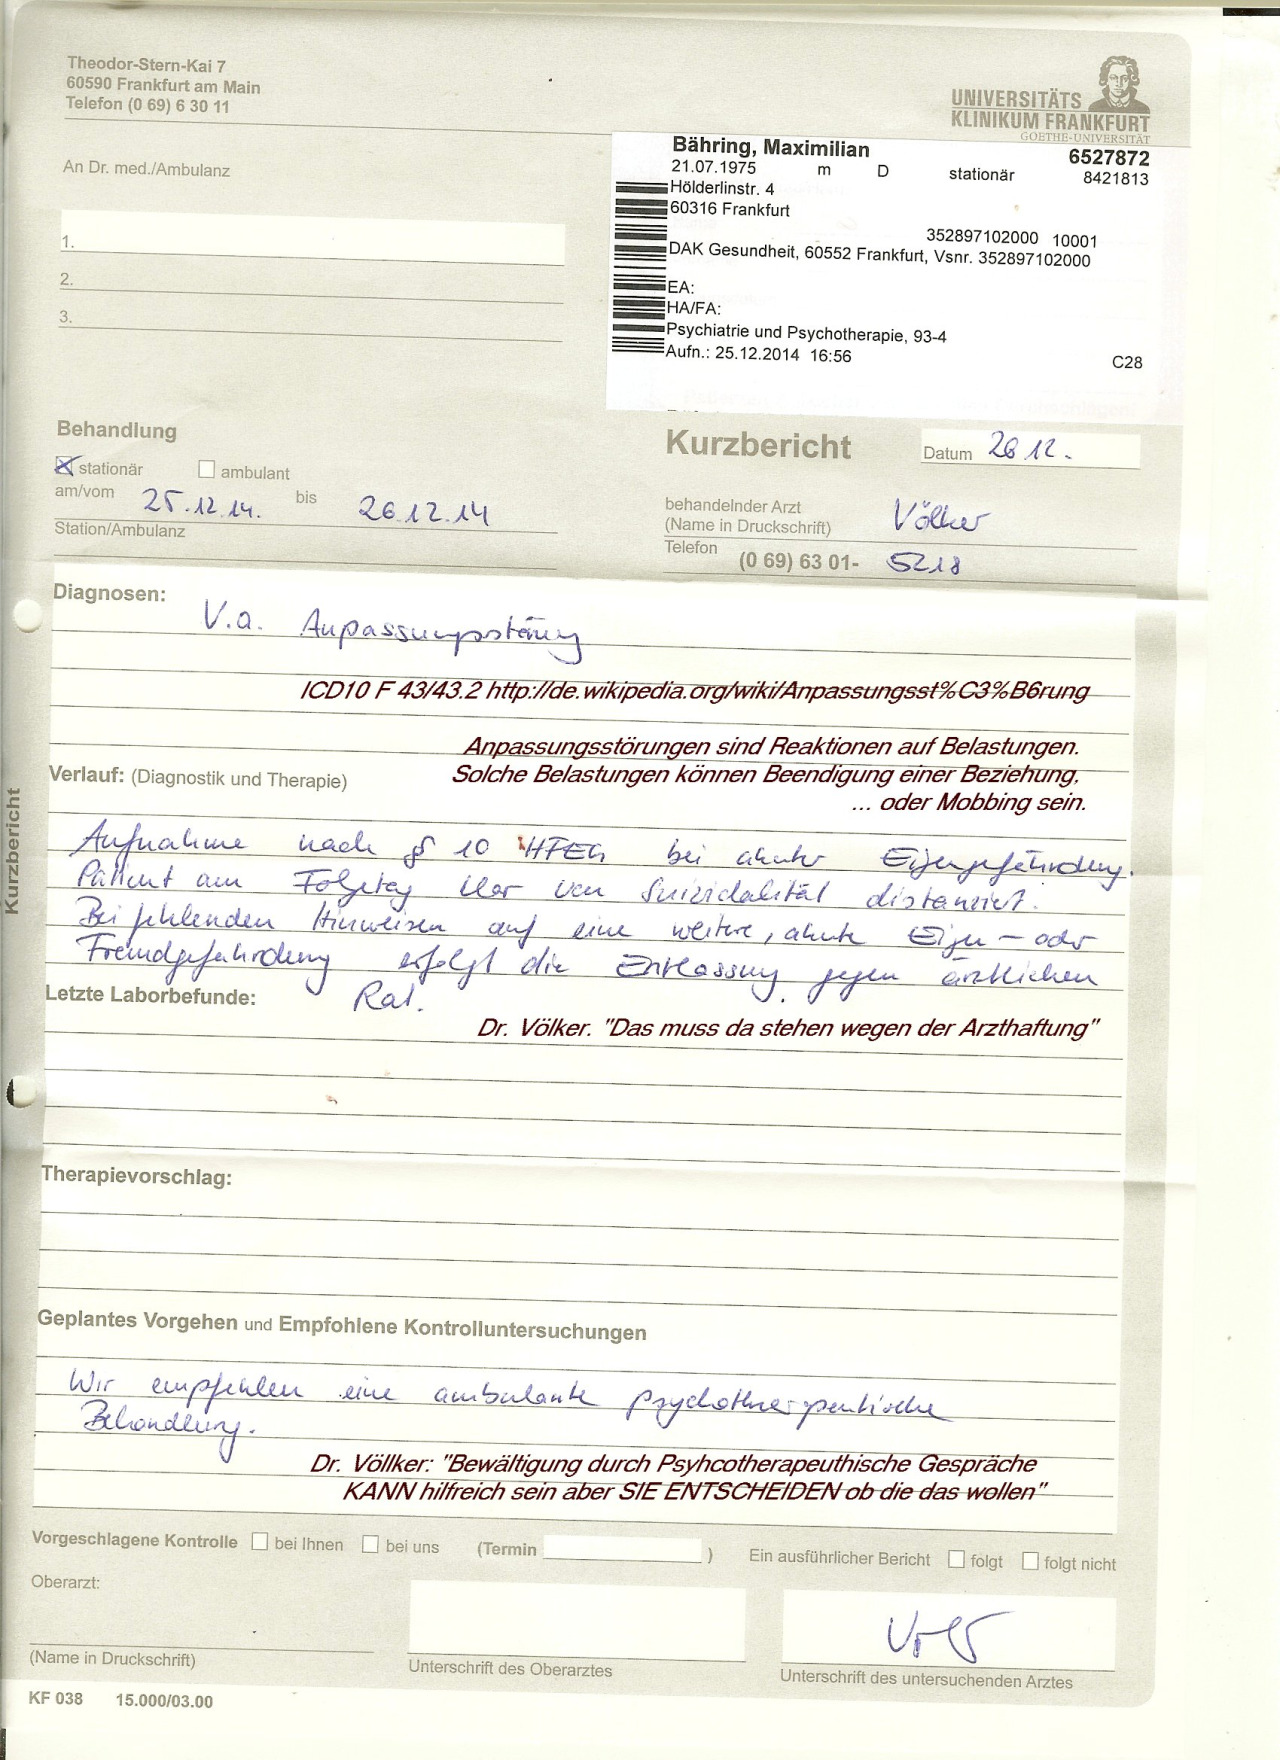 Theodor-Stern-Kai 7
60590 Frankfurt am Main
Telefon (0 69) 6 30 11
UNIVERSITÄTS
KLINIKUM FRANKFURT
GOETHE-UNIVERSITÄT
An Dr. med./Ambulanz
1.
2.
3.
Bähring, Maximilian 6527872
21.07.1975 m D stationär 8421813
Hölderlinstr. 4
60316 Frankfurt
352897102000 10001
DAK Gesundheit, 60552 Frankfurt, Vsnr. 352897102000
EA:
HA/FA:
Psychiatrie und Psychotherapie, 93-4
Aufn.: 25.12.2014 16:56
C28
Behandlung
stationär ambulant
am/vom 25.12.14. bis 26.12.14
Station/Ambulanz
Kurzbericht Datum 26 12.
behandelnder Arzt
(Name in Druckschrift) Völker
Telefon (0 69) 63 01- 5218
Diagnosen:
V.a. Anpassungsstörung
ICD10 F 43/43.2 http://de.wikipedia.org/wiki/Anpassungsst%C3%B6rung
Anpassungsstörungen sind Reaktionen auf Belastungen.
Verlauf: (Diagnostik und Therapie) Solche Belastungen können Beendigung einer Beziehung,
... oder Mobbing sein.
Kurzbericht
Aufnahme nach § 10 HFEG bei akuter Eigengefährdung.
Patient am Folgetag klar von Suizidalität distanziert.
Bei fehlenden Hinweisen auf eine weitere, akute Eigen- oder
Fremdgefährdung erfolgt die Entlassung gegen ärztlichen
Rat.
Letzte Laborbefunde:
Dr. Völker. "Das muss da stehen wegen der Arzthaftung"
Therapievorschlag:
Geplantes Vorgehen und Empfohlene Kontrolluntersuchungen
Wir empfehlen eine ambulante psychotherapeutische
Behandlung.
Dr. Völlker: "Bewältigung durch Psyhcotherapeuthische Gespräche
KANN hilfreich sein aber SIE ENTSCHEIDEN ob die das wollen"
Vorgeschlagene Kontrolle bei Ihnen bei uns (Termin ) Ein ausführlicher Bericht folgt folgt nicht
Oberarzt:
(Name in Druckschrift) Unterschrift des Oberarztes Unterschrift des untersuchenden Arztes
KF 038 15.000/03.00